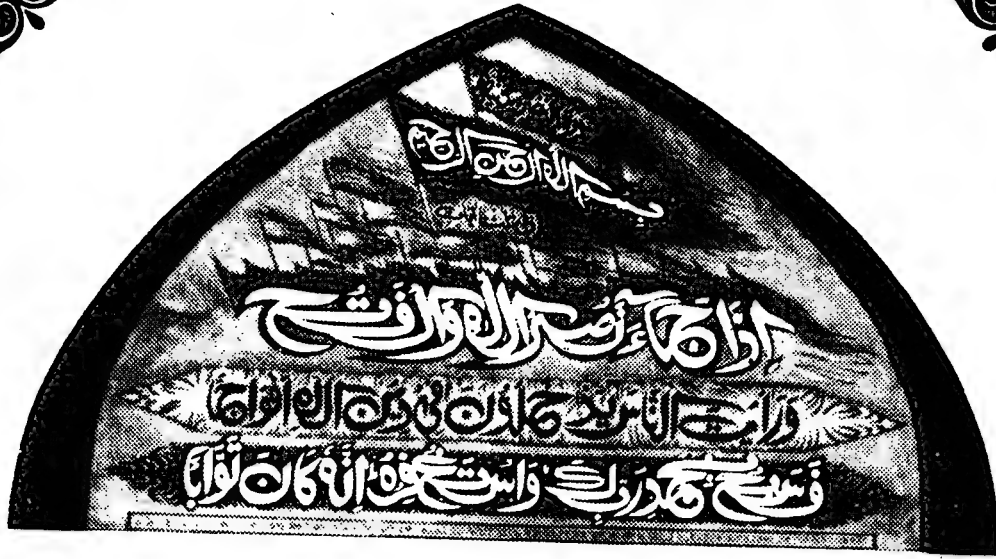 بسم الله الرحمن الرحيم
إِذَا جَاءَ نَصْرُ اللَّهِ وَالْفَتْحُ
وَرَأَيْتَ النَّاسَ يَدْخُلُونَ فِي دِينِ اللَّهِ أَفْوَاجًا
فَسَبِّحْ بِحَمْدِ رَبِّكَ وَاسْتَغْفِرْهُ إِنَّهُ كَانَ تَوَّابًا